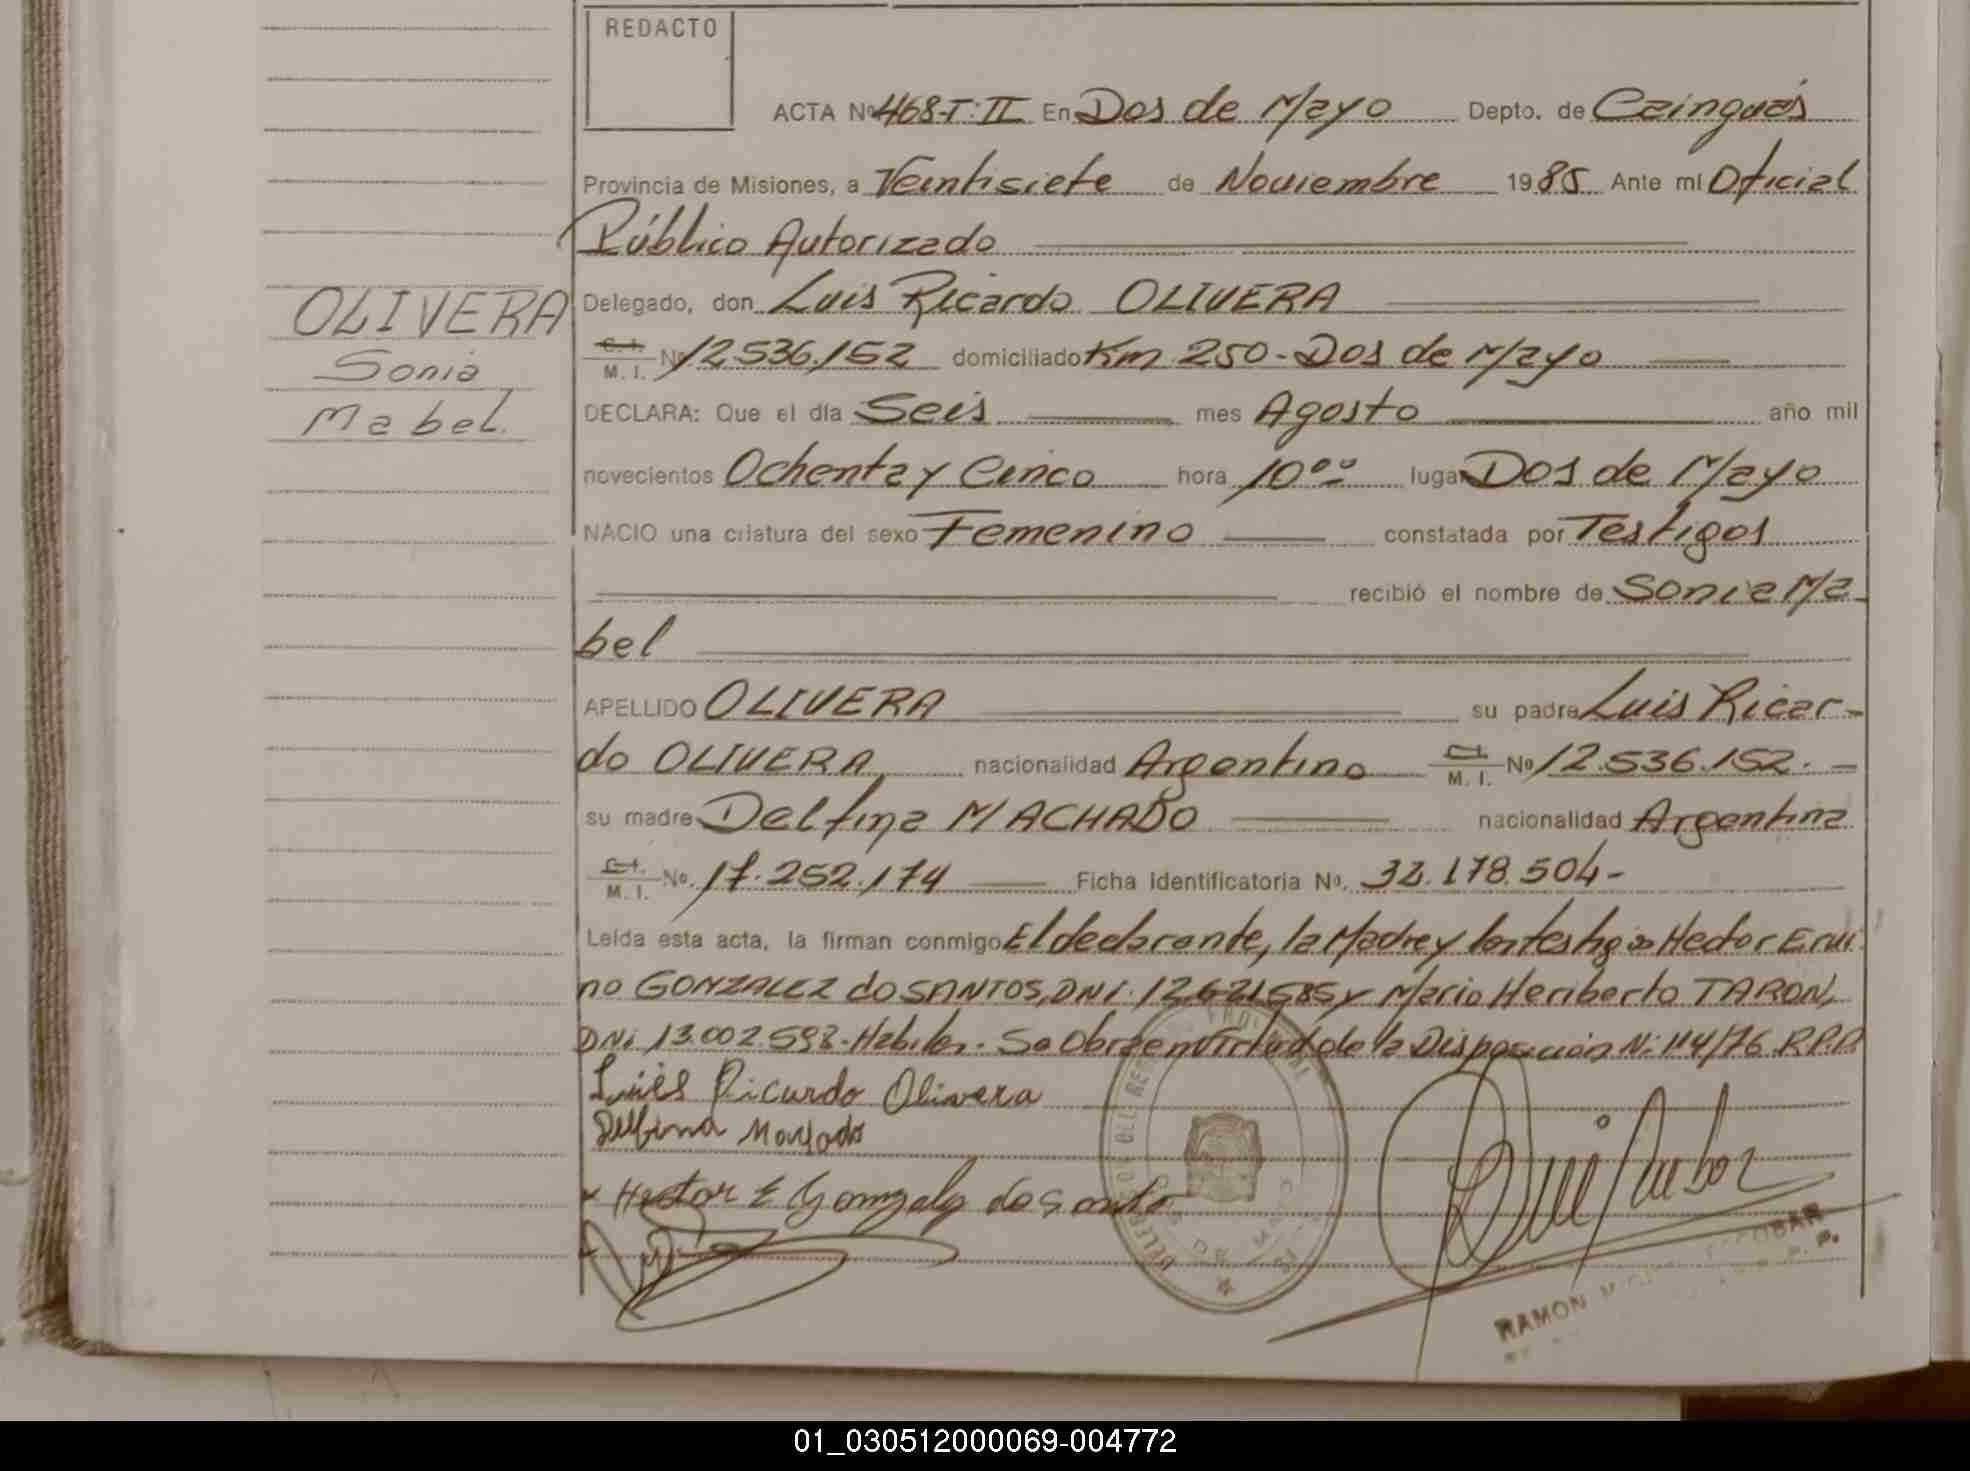 REDACTO
ACTA Nº 468-T:II En Dos de Mayo Depto. de Cainguás
Provincia de Misiones, a Veintisiete de Noviembre 1985 Ante mí Oficial
Público Autorizado
Delegado, don Luis Ricardo OLIVERA
OLIVERA
Sonia
Mabel.
C. I. M. I. Nº 12.536.152 domiciliado Km 250 - Dos de Mayo
DECLARA: Que el día Seis mes Agosto año mil
novecientos Ochenta y Cinco hora 10ºº lugar Dos de Mayo
NACIO una criatura del sexo Femenino constatada por Testigos
recibió el nombre de Sonia Ma-
bel
APELLIDO OLIVERA su padre Luis Ricar-
do OLIVERA, nacionalidad Argentino C.I. M. I. Nº 12.536.152.-
su madre Delfina MACHADO nacionalidad Argentina
C.I. M. I. Nº. 17.252.174 Ficha Identificatoria Nº. 32.178.504-
Leída esta acta, la firman conmigo El declarante, la Madre y los testigos Hector Erui
no GONZALEZ do SANTOS, DNI. 12.621.585 y Mario Heriberto TARON,
DNI 13.002.593.-Habiles.- Se Obra en Virtud de la Disposición N: 114/76 R.P.P
Luis Ricardo Olivera
Delfina Machado
Hector E Gonzalez do Santo
RAMON ESCOBAR
01_030512000069-004772